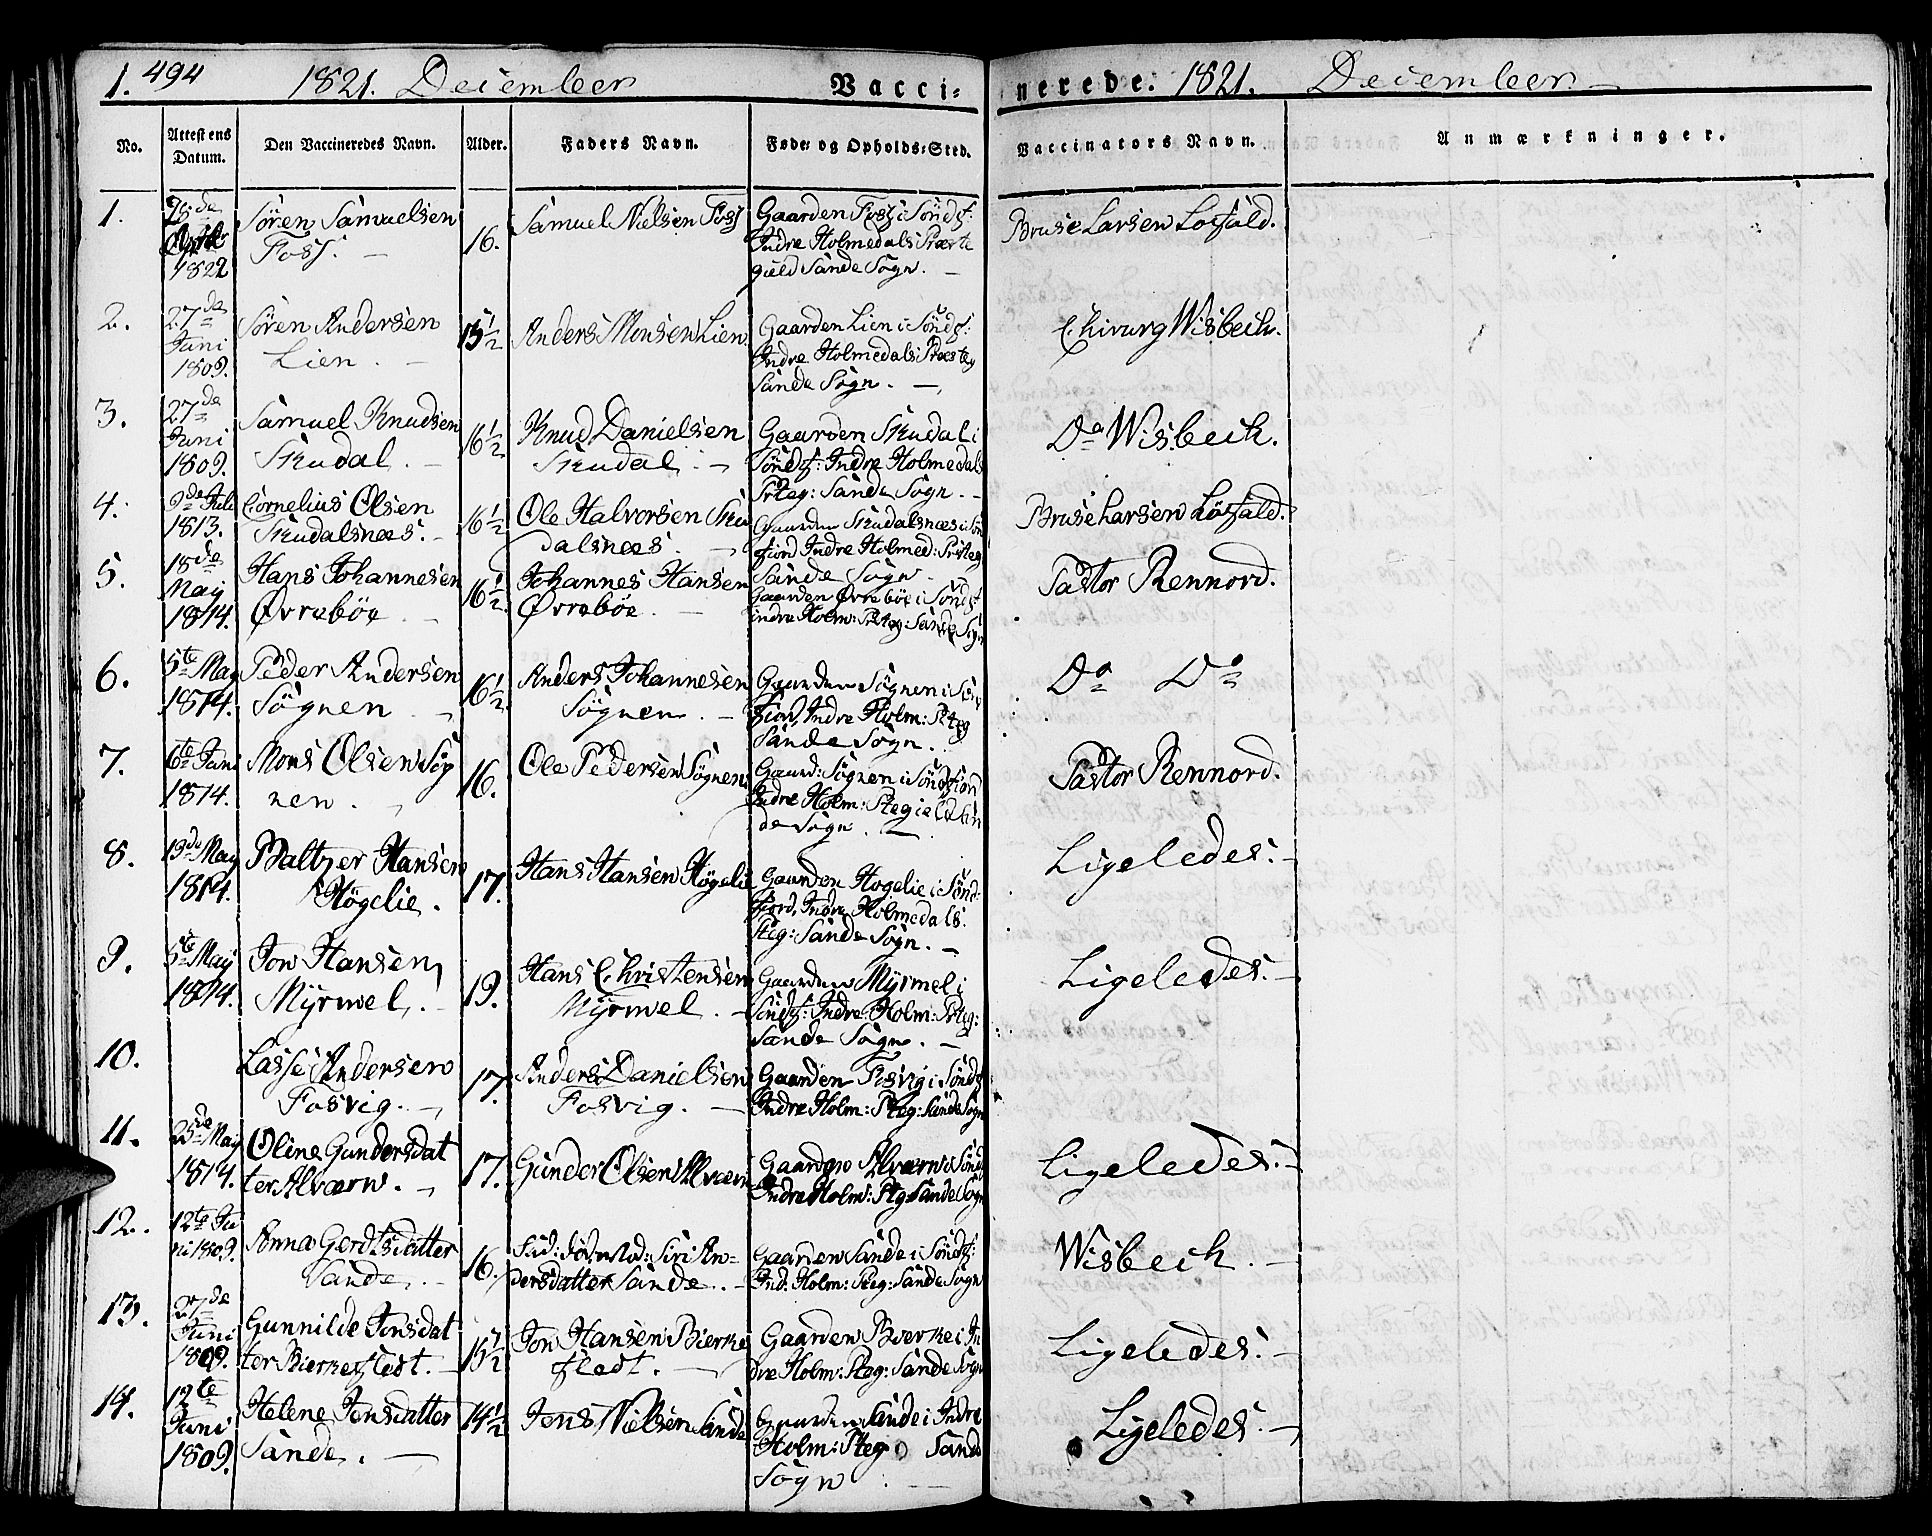 1. 494 1821. December Vacci-
nerede. 1821. December.
No. Attestens Datum. Den Vaccineredes Navn. Alder. Faders Navn. Føde- og Opholds-Sted. Vaccinators Navn. Anmærkninger.
1. Sören Samuelsen 16. Samuel Nielsen Foss Gaarden Foss i Söndf: Bruse Larsen Losfald.
Foss. Indre Holmedals Præste
1822 gield Sande Sogn.
2. 27de Sören Andersen 15½ Anders Monsen Lien Gaarden Lien i Söndf: Chirurg Wisbech.
Juni Lien. Indre Holmedals Præsteg
1809. Sande Sogn.
3. 27de Samuel Knudsen 16½ Knud Danielsen Gaarden Skudal i Do Wisbech.
Juni Skudal. Skudal. Söndf: Indre Holmedals
1809. Prteg: Sande Sogn.
4. 9de Juli Cornelius Olsen 16½ Ole Halvorsen Sku Gaarden Skudalsnæs i Sön Bruse Larsen Losfald.
1813. Skudalsnæs. dalsnæs. fiord Indre Holmed: Prsteg
Sande Sogn.
5. 18de Hans Johannesen 16½ Johannes Hansen Gaarden Ørrebøe i Söndf Pastor Rennord.
May Ørrebøe Ørrebøe. indre Holm: Prteg: Sande Sogn
1814.
6. 5te May Peder Andersen 16½ Anders Johannesen Gaarden Sögnen i Sön Do Do
1814. Sögnen Sögnen. fiord, Indre Holm: Prteg
Sande Sogn.
7. 6te Juni Mons Olsen Sög 16. Ole Pedersen Sögnen Gaard: Sögnen i Söndfiord Pastor Rennord.
1814. nen. Indre Holm: Steg
de Sogn.
8. 19de May Baltzer Hansen 17. Hans Hansen Högelie Gaarden Hogelie i Sönd- Ligeledes.
1814. Högelie. fiord, Indre Holmedals
Steg: Sande Sogn.
9. 5te May Jon Hansen 19. Hans Christensen Gaarden Myrmel i Ligeledes.
1814. Myrmel. Myrmel. Söndf: Indre Holm: Prteg:
Sande Sogn.
10. Lasse Andersen 17. Anders Danielsen Gaarden Fosvig i Söndf
Fosvig. Fosvig. Indre Holm: Steg: Sande Sogn
11. 25de May Oline Gundersdat 17. Gunder Olsen Alværn Gaarden Alværn i Sönd Ligeledes.
1814. ter Alværn. Indre Holm: Steg Sande Sogn
12. 12te Ju Anna Gerdtsdatter 16. Siri An- Gaarden Sande i Söndf: Wisbech.
ni 1809. Sande. dersdatter Sande. Ind: Holm: Steg: Sande Sogn
13. 27de Gunnilde Jonsdat 15½ Jon Hansen Bierke Gaarden Bierke i In Ligeledes.
Juni ter Bierkefledt. flædt. dre Holm: Steg: Sande Sogn
1809.
14. 12te Helene Jensdatter 14½ Jens Nielsen Sande Gaarden Sande i Indre Ligeledes.
Juni Sande. Holm: Steg Sande
1809. Sogn